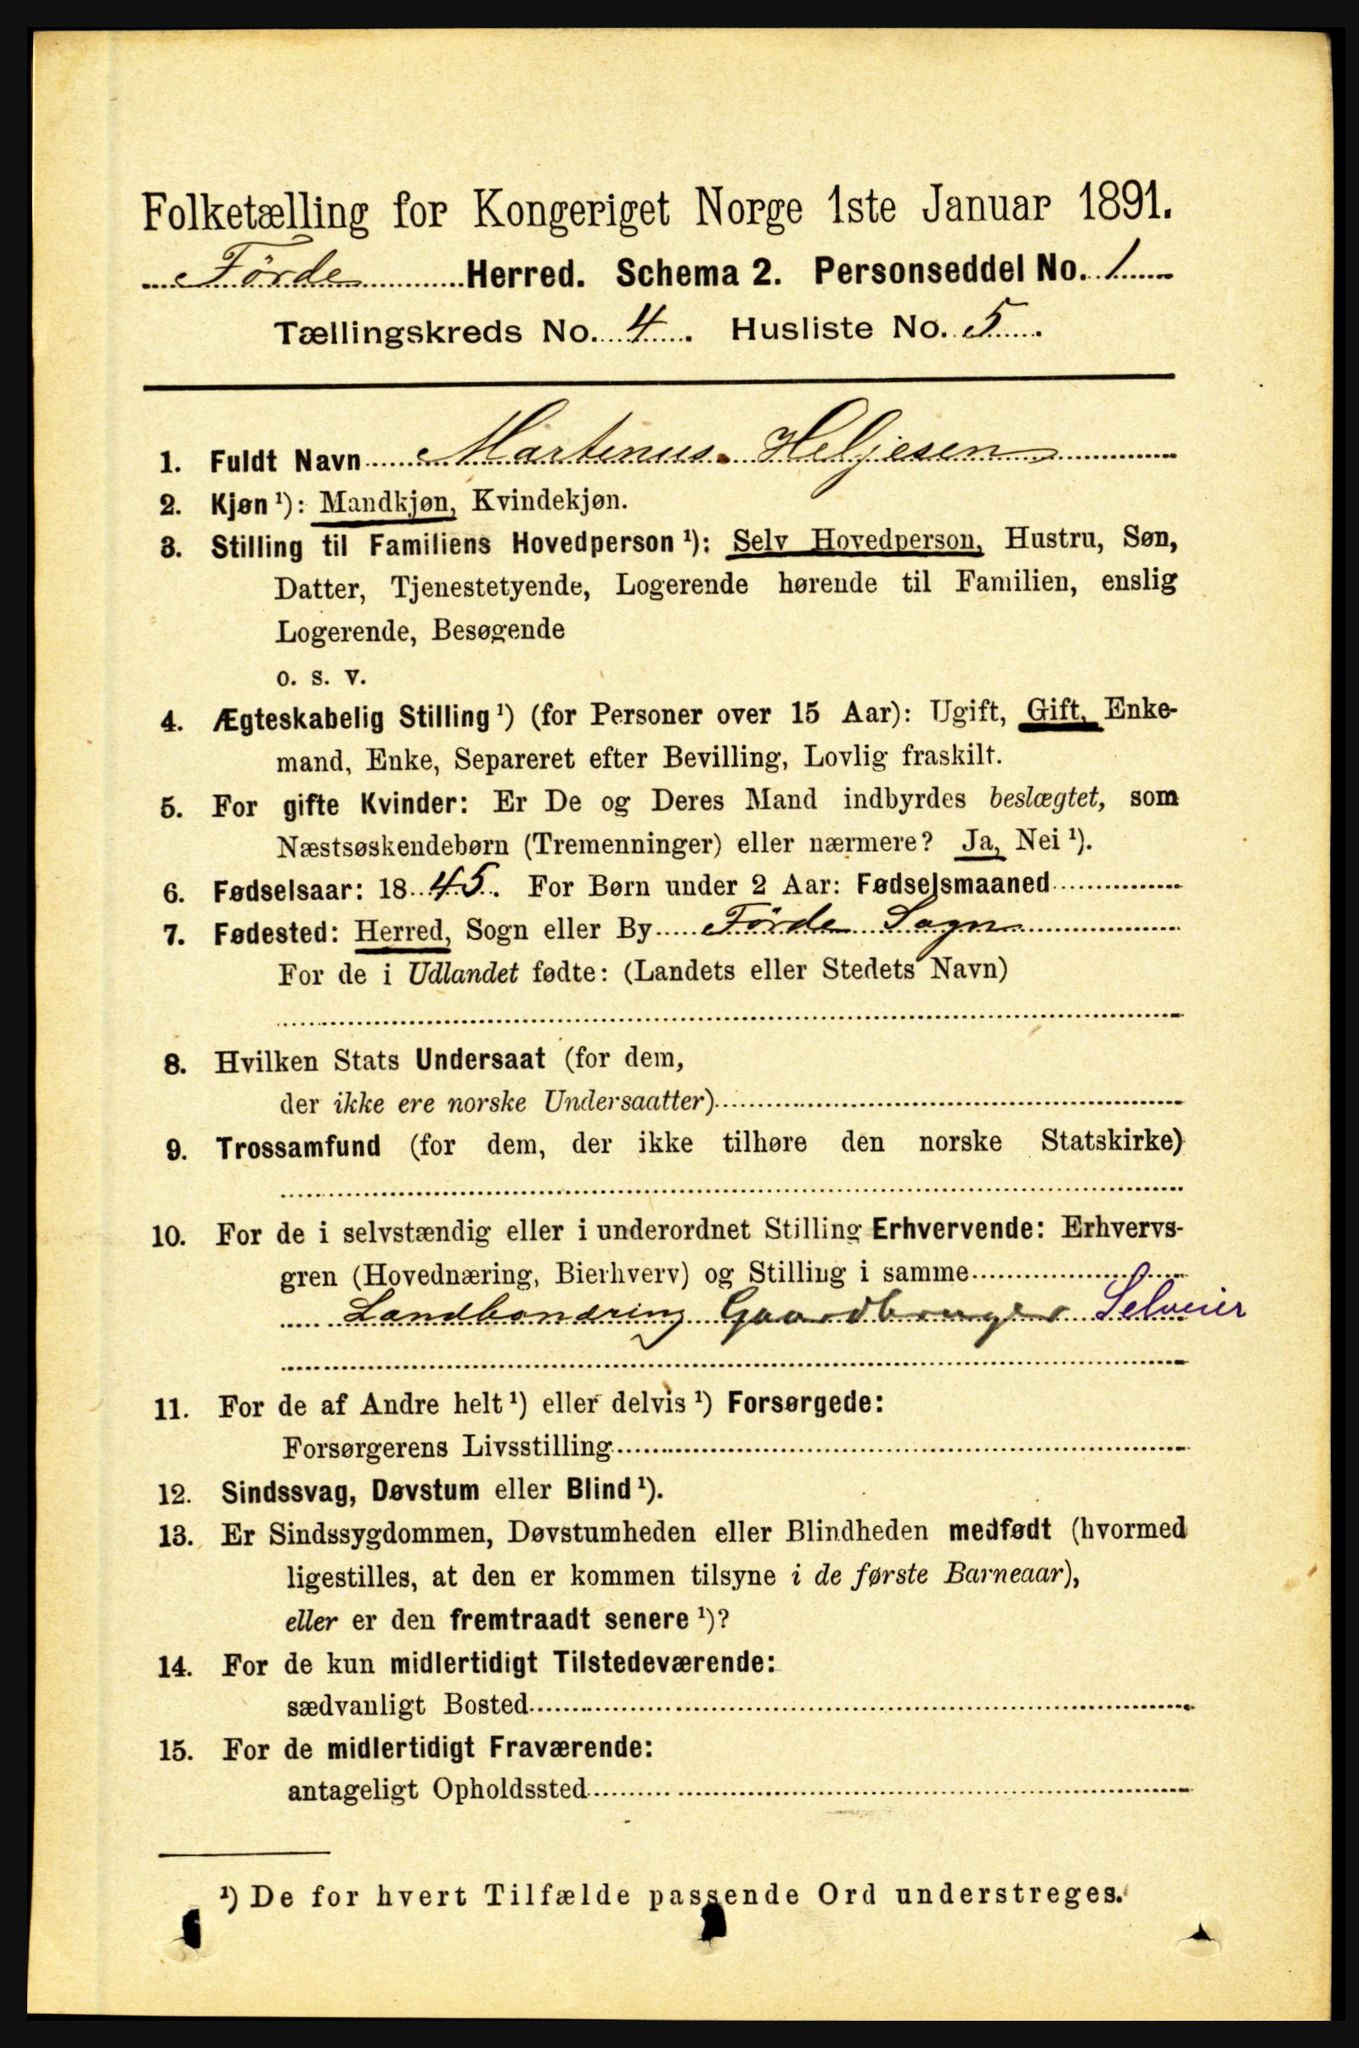 Folketælling for Kongeriget Norge 1ste Januar 1891.
Førde Herred. Schema 2. Personseddel No. 1
Tællingskreds No. 4. Husliste No. 5.
1. Fuldt Navn Martinus Heljesen
2. Kjøn ¹): Mandkjøn, Kvindekjøn.
3. Stilling til Familiens Hovedperson ¹): Selv Hovedperson, Hustru, Søn,
Datter, Tjenestetyende, Logerende hørende til Familien, enslig
Logerende, Besøgende
o. s. v.
4. Ægteskabelig Stilling ¹) (for Personer over 15 Aar): Ugift, Gift, Enke-
mand, Enke, Separeret efter Bevilling, Lovlig fraskilt.
5. For gifte Kvinder: Er De og Deres Mand indbyrdes beslægtet, som
Næstsøskendebørn (Tremenninger) eller nærmere? Ja, Nei ¹).
6. Fødselsaar: 1845. For Børn under 2 Aar: Fødselsmaaned
7. Fødested: Herred, Sogn eller By Førde Sogn
For de i Udlandet fødte: (Landets eller Stedets Navn)
8. Hvilken Stats Undersaat (for dem,
der ikke ere norske Undersaatter)
9. Trossamfund (for dem, der ikke tilhøre den norske Statskirke)
10. For de i selvstændig eller i underordnet Stilling Erhvervende: Erhvervs-
gren (Hovednæring, Bierhverv) og Stilling i samme
Landbonæring Gaardbruger Selveier
11. For de af Andre helt ¹) eller delvis ¹) Forsørgede:
Forsørgerens Livsstilling
12. Sindssvag, Døvstum eller Blind ¹).
13. Er Sindssygdommen, Døvstumheden eller Blindheden medfødt (hvormed
ligestilles, at den er kommen tilsyne i de første Barneaar),
eller er den fremtraadt senere ¹)?
14. For de kun midlertidigt Tilstedeværende:
sædvanligt Bosted
15. For de midlertidigt Fraværende:
antageligt Opholdssted
¹) De for hvert Tilfælde passende Ord understreges.